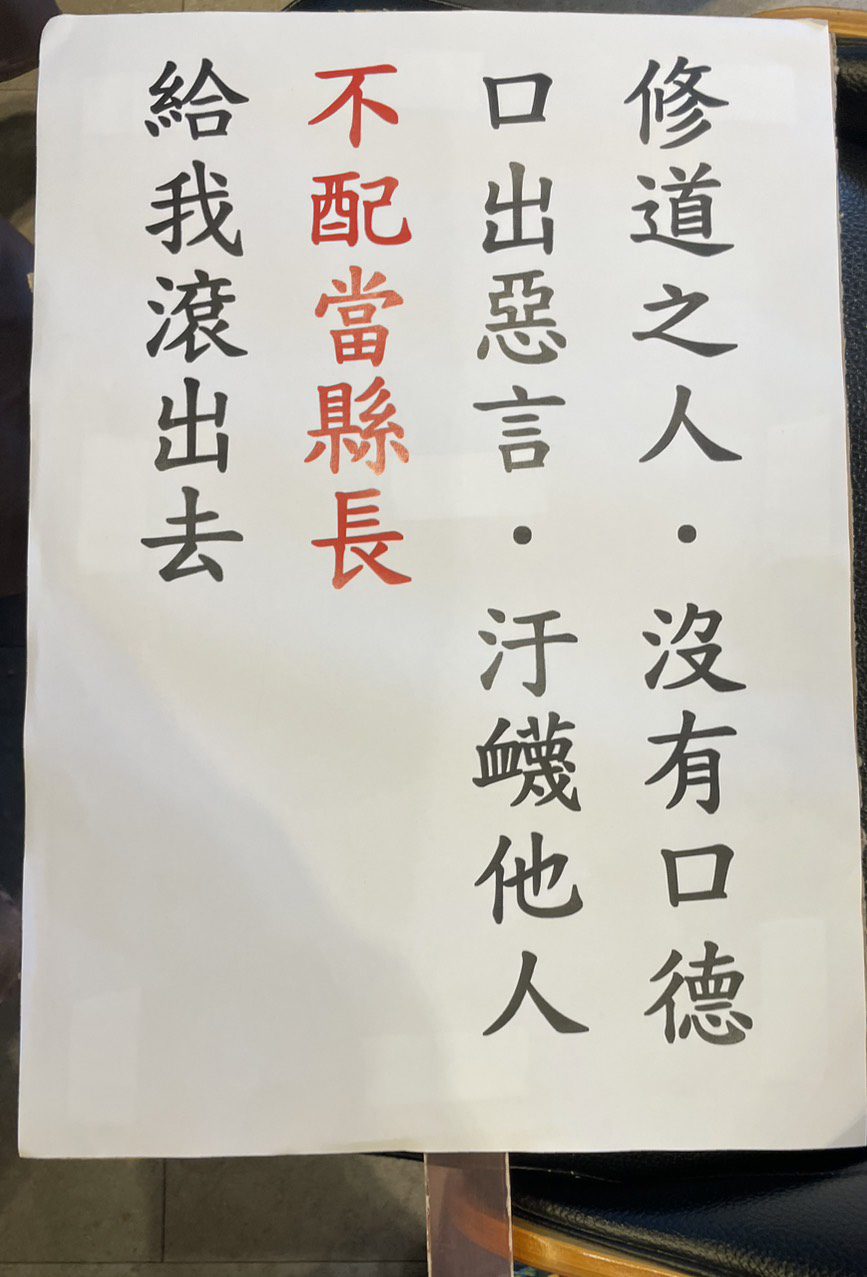 修道之人．沒有口德
口出惡言．汙衊他人
不配當縣長
給我滾出去